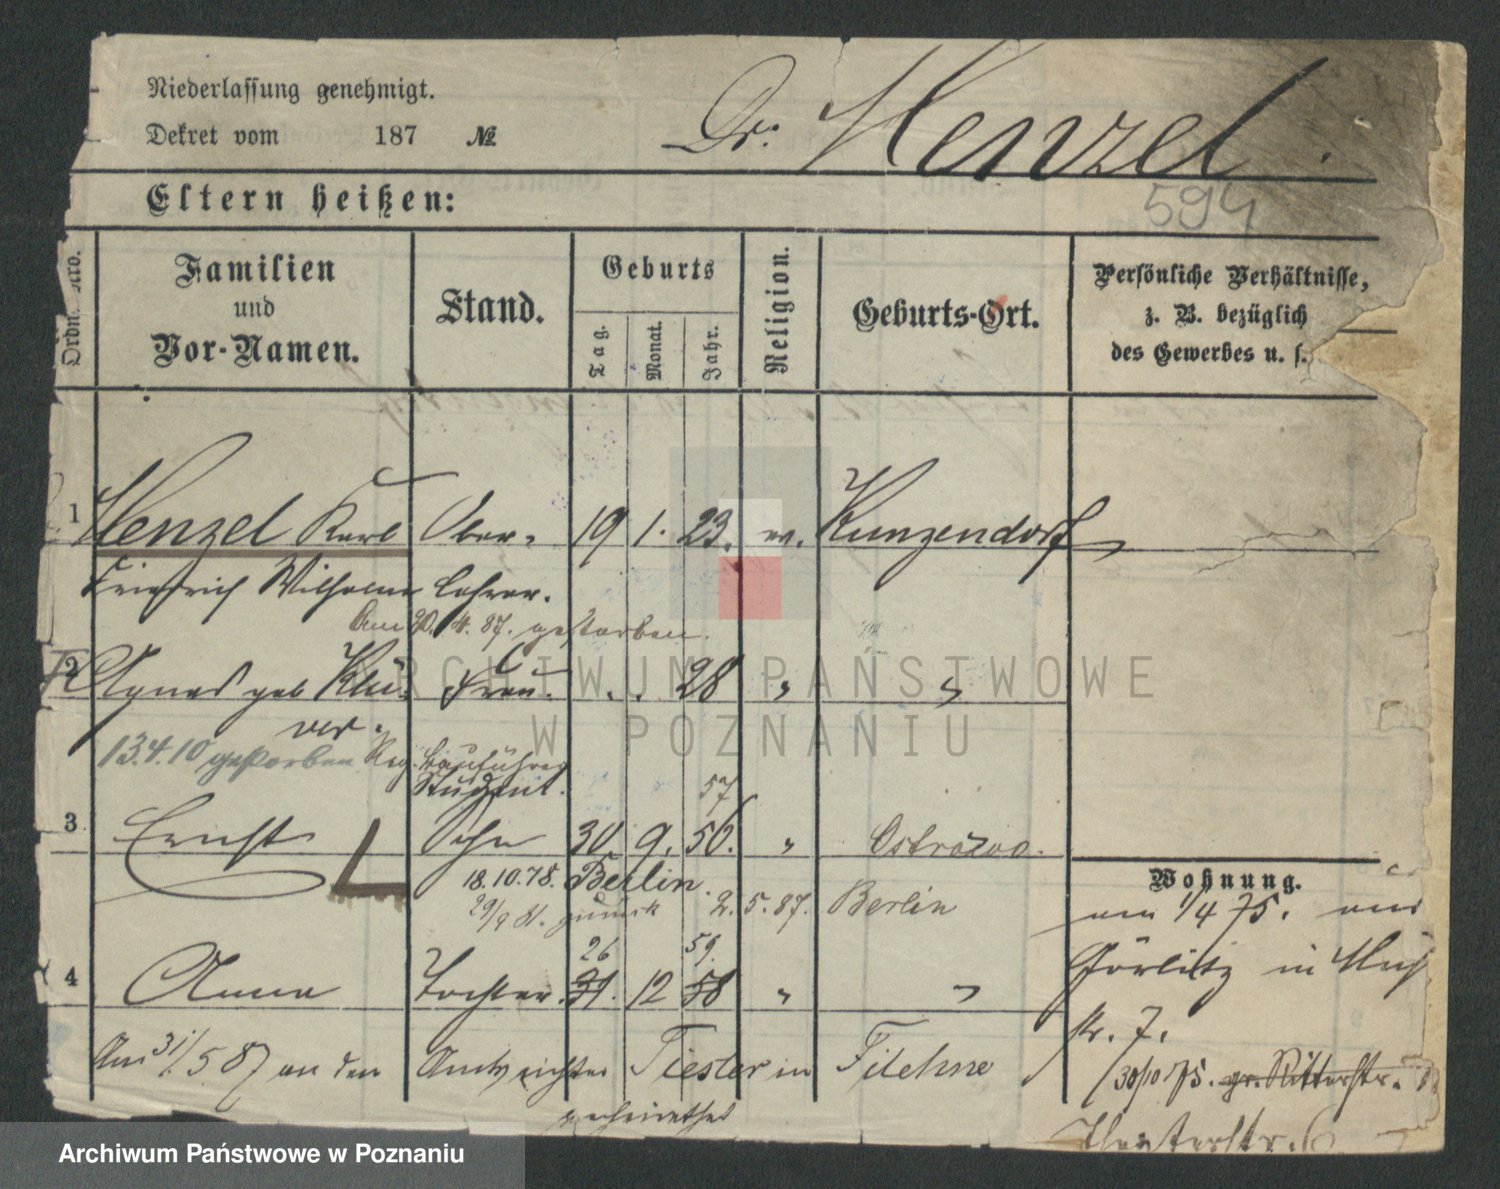 Niederlassung genehmigt.
Dekret vom 187 №
Dr. Henzel.
594
Eltern heißen:
Familien
und
Vor-Namen.
Stand.
Geburts
Tag.
Monat.
Jahr.
Religion.
Geburts-Ort.
Persönliche Verhältnisse,
z. B. bezüglich
des Gewerbes u. s.
1 Henzel Karl Ober- 19 1. 23. ev. Kunzendorf
Friedrich Wilhelm Lehrer.
Am 20. 4. 87. gestorben.
2 Agnes geb Klü- Frau. 28 " "
ver.
13.4.10 gestorben Reg. Bauführer
Student.
57
3 Ernst Sohn 30. 9. 56. " Ostrowo.
18.10.78. Berlin.
29/9 zurück 2. 5. 87. Berlin
26 59.
4 Anna Tochter. 31. 12 58 " "
Am 31/5 87 an den Amtsrichter Tiesler in Filehne
verheirathet
Wohnung.
am 1/4 75. aus
Görlitz in
str. 7.
30/10 75. gr. Ritterstr.
Theaterstr. 6
ARCHIWUM PAŃSTWOWE
W POZNANIU
Archiwum Państwowe w Poznaniu